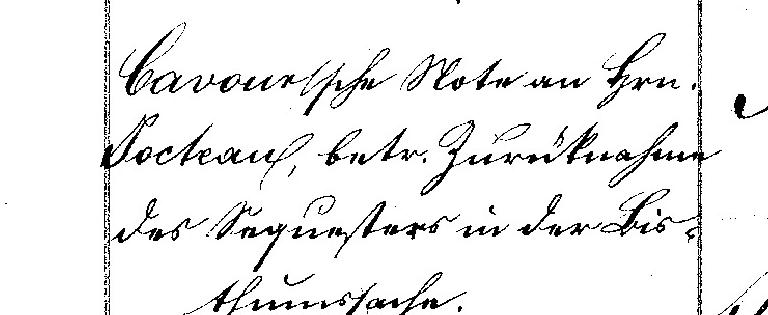 Cavour'sche Note an Hrn.
Jocteau, betr. Zurüknahme
des Sequesters in der Bis-
thumssache.